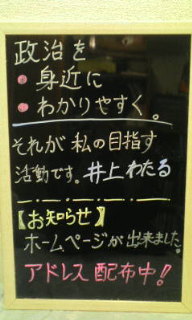 政治を
身近に
わかりやすく。
それが私の目指す
活動です。井上わたる
【お知らせ】
ホームページが出来ました。
アドレス配布中!